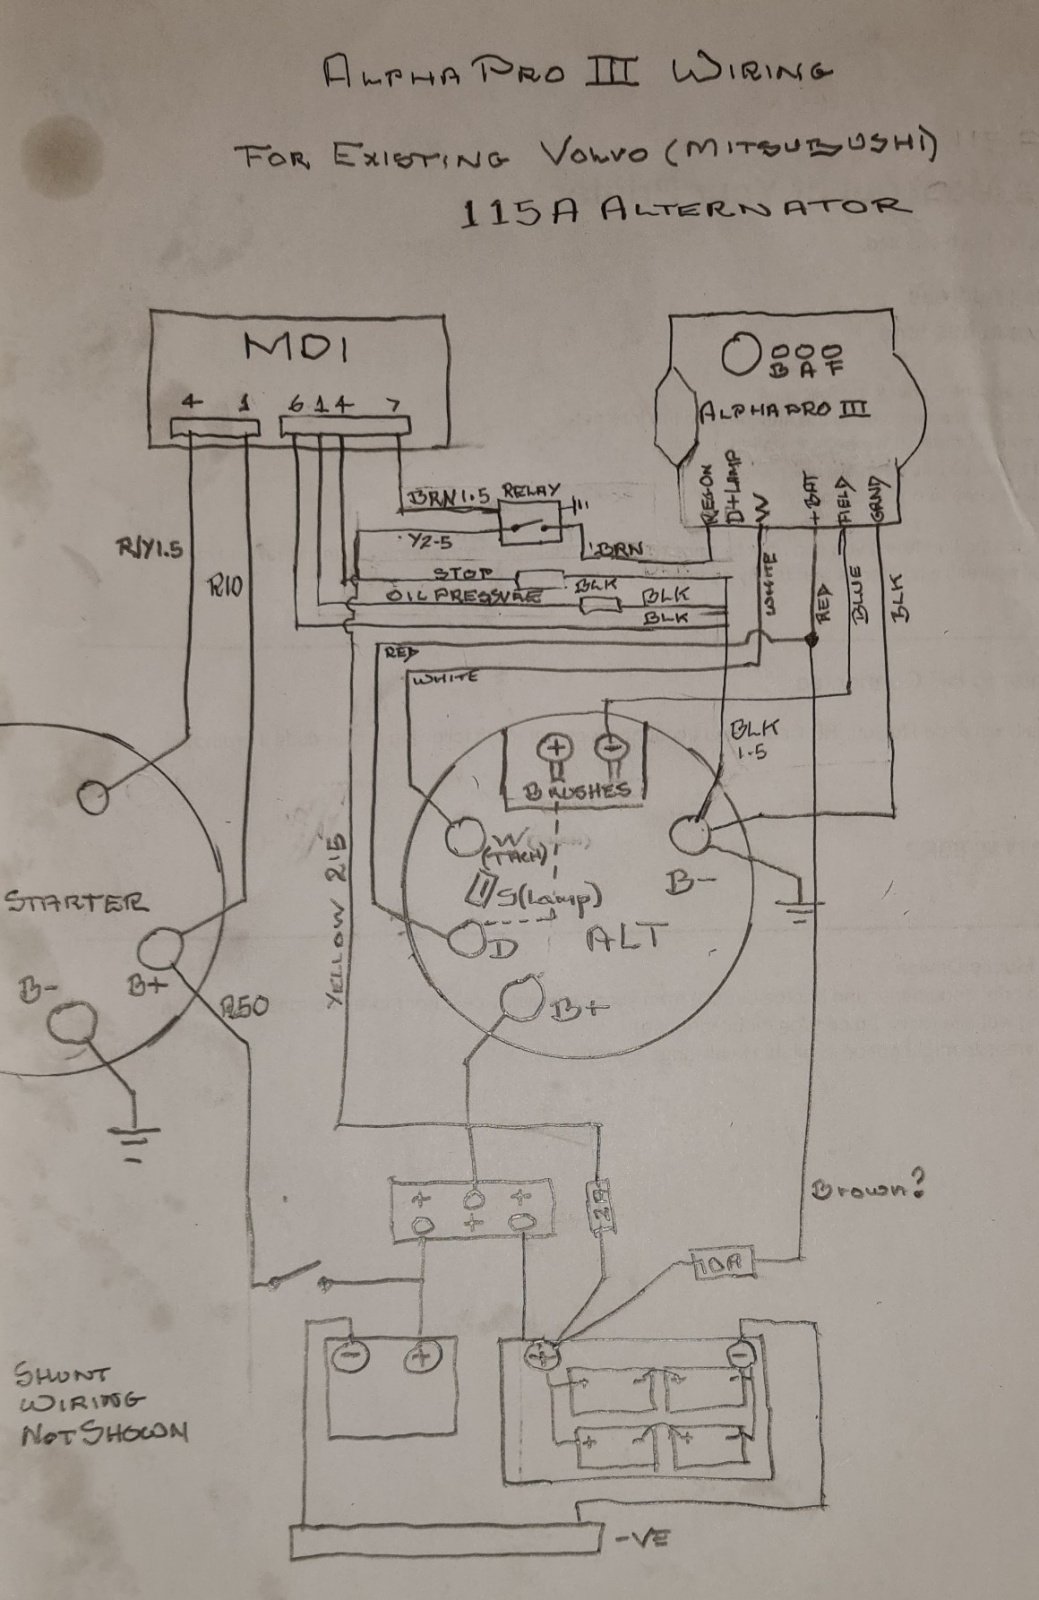 ALPHA PRO III WIRING
FOR EXISTING VOLVO (MITSUBUSHI)
115A ALTERNATOR
MDI
4 1 6 1 4 7
B A F
ALPHAPRO III
REGON
D+LAMP
W
+BAT
FIELD
GRND
BRN 1.5
RELAY
Y2-5
BRN
R/Y1.5
R10
STOP
BLK
OIL PRESSURE
BLK
BLK
WHITE
RED
BLUE
BLK
RED
WHITE
BLK
1-5
+ -
BRUSHES
W
(TACH)
S(Lamp)
D
ALT
B-
B+
YELLOW 2.5
STARTER
B-
B+
R50
+ + +
2A
Brown?
10A
- + + -
+ - + -
+ - + -
SHUNT
WIRING
NOT SHOWN
-VE